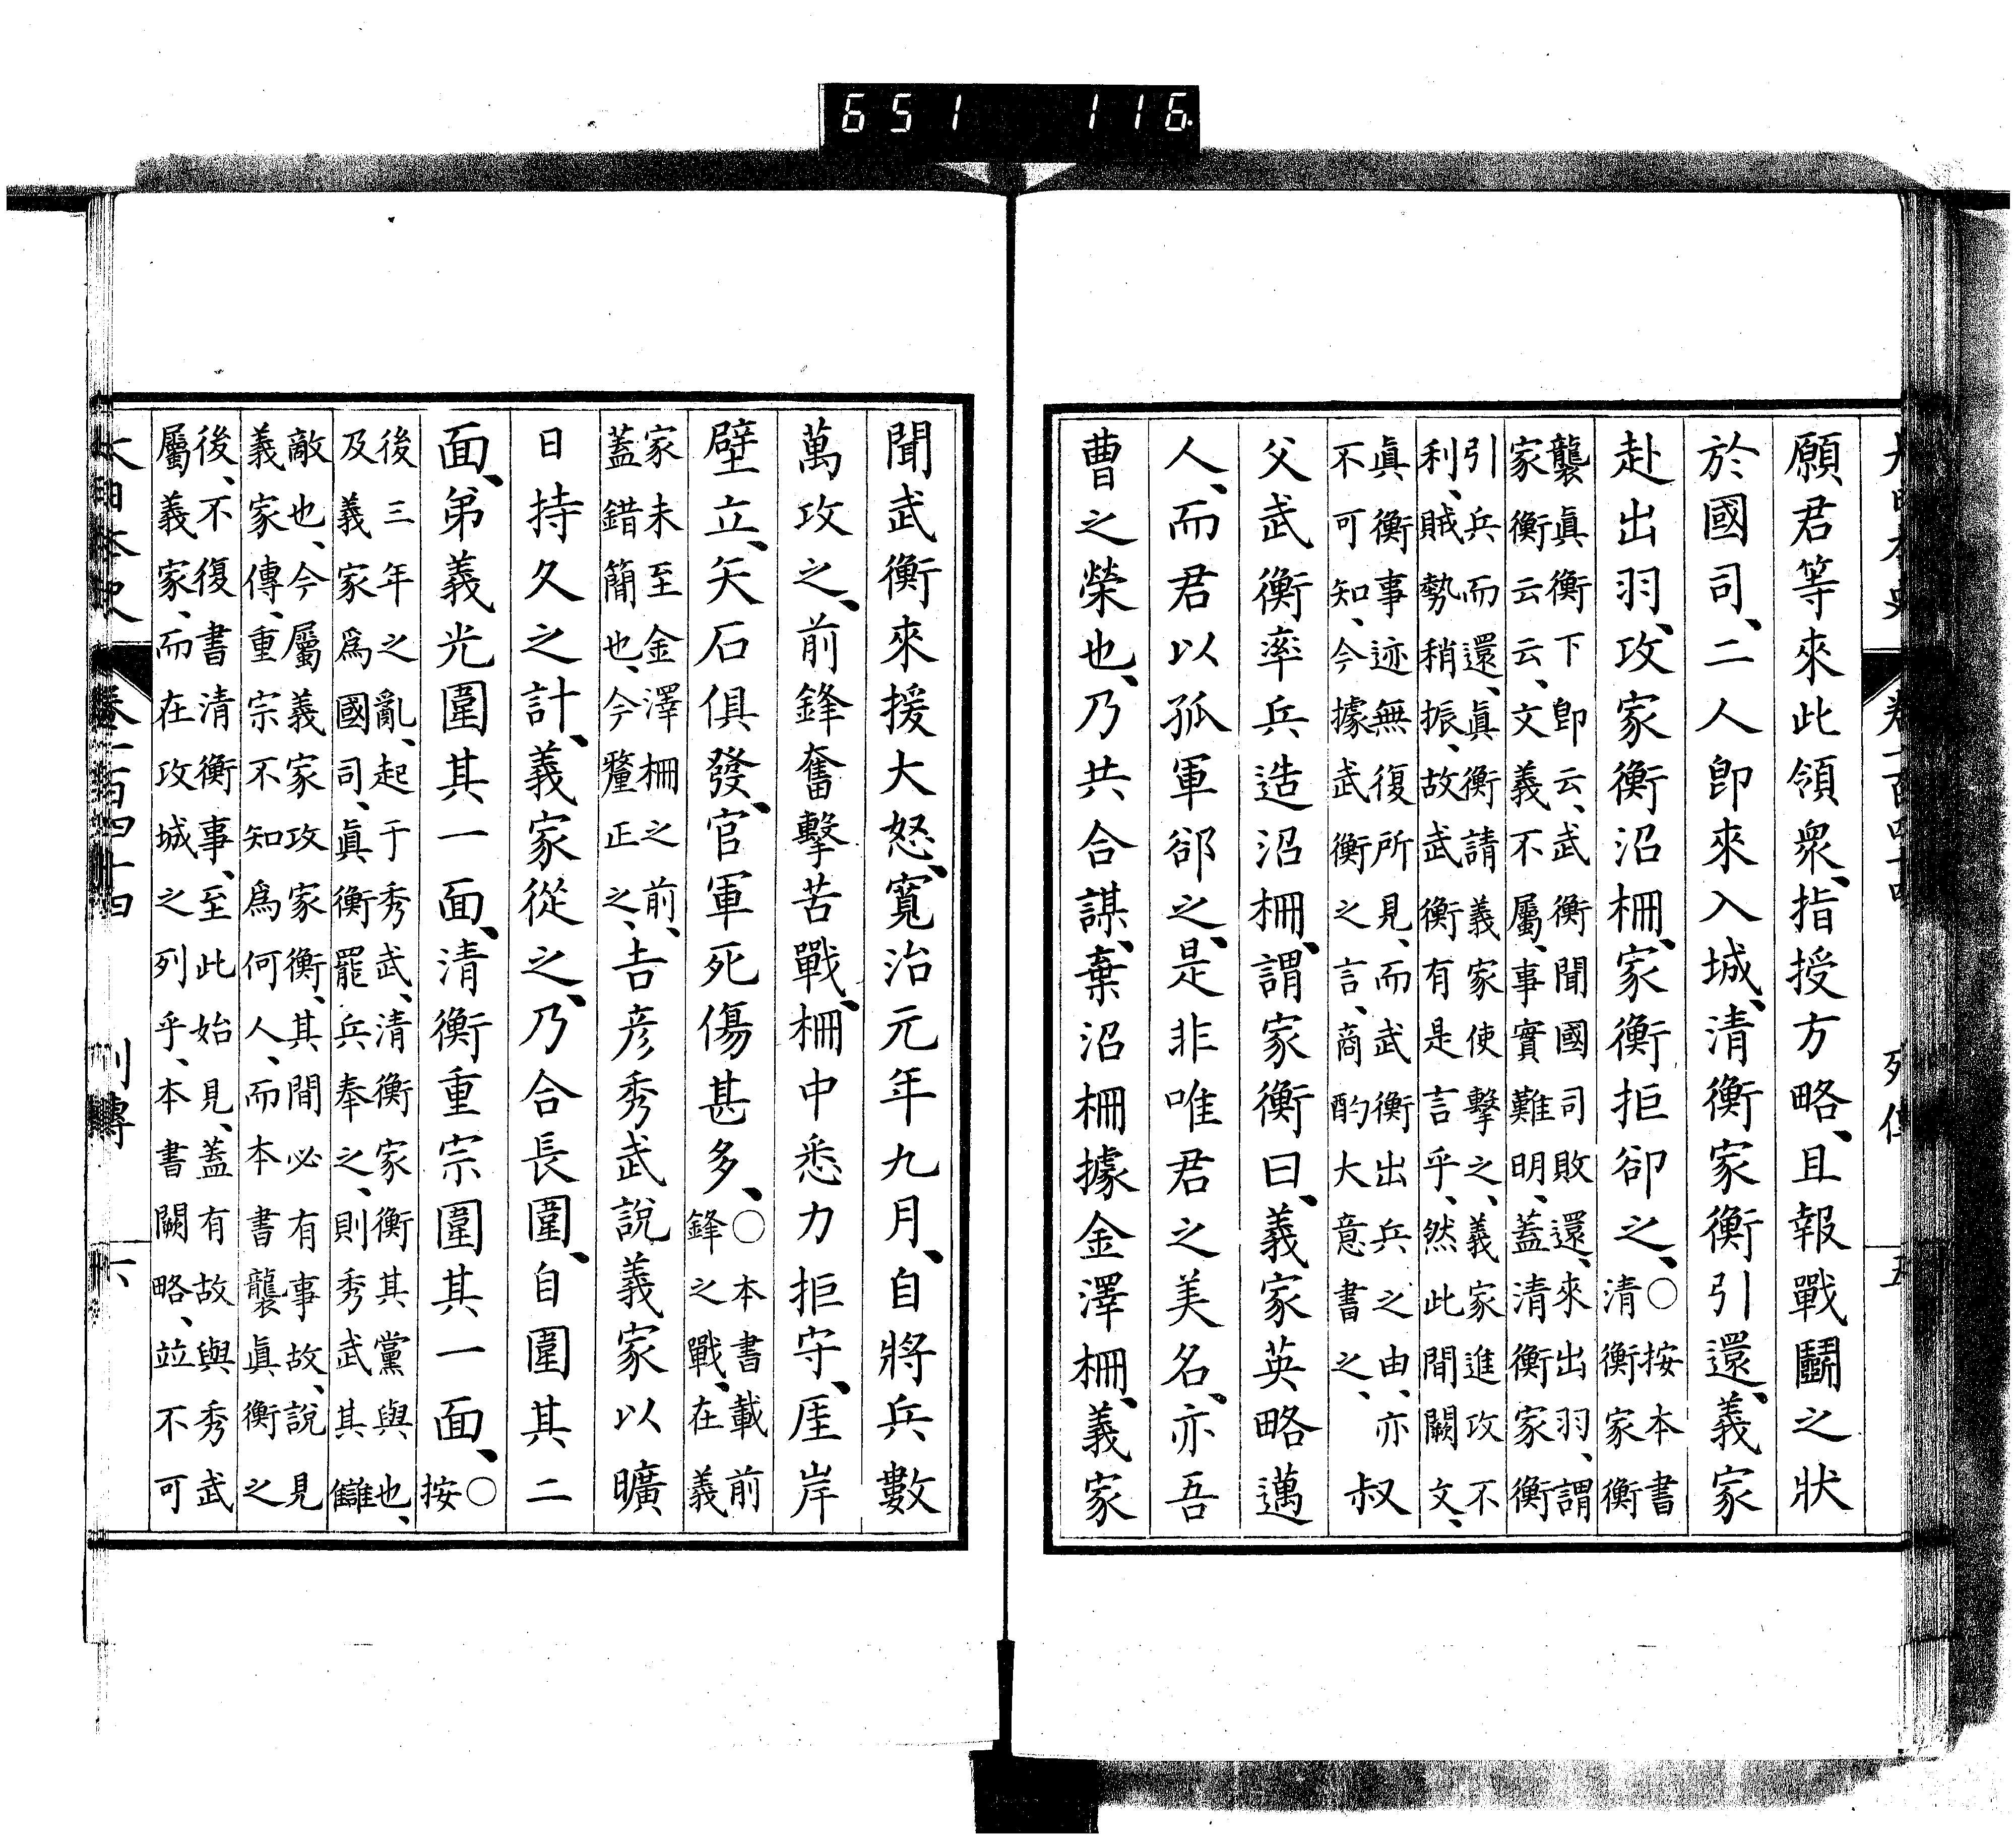 651 116
大日本史 卷一百四十四 列傳 五
願君等來此領衆、指授方略、且報戰鬪之狀
於國司、二人卽來入城、清衡家衡引還、義家
赴出羽、攻家衡沼柵、家衡拒卻之、〇按本書清衡家衡
襲眞衡下卽云、武衡聞國司敗還、來出羽、謂
家衡云云、文義不屬、事實難明、蓋清衡家衡
引兵而還、眞衡請義家使擊之、義家進攻不
利、賊勢稍振、故武衡有是言乎、然此間闕文、
眞衡事迹無復所見、而武衡出兵之由、亦
不可知、今據武衡之言、商酌大意書之、叔
父武衡率兵造沼柵、謂家衡曰、義家英略邁
人、而君以孤軍卻之、是非唯君之美名、亦吾
曹之榮也、乃共合謀、棄沼柵據金澤柵、義家
聞武衡來援大怒、寬治元年九月、自將兵數
萬攻之、前鋒奮擊苦戰、柵中悉力拒守、厓岸
壁立、矢石俱發、官軍死傷甚多、〇本書載前鋒之戰、在義
家未至金澤柵之前、
蓋錯簡也、今釐正之、吉彦秀武說義家以曠
日持久之計、義家從之、乃合長圍、自圍其二
面、弟義光圍其一面、清衡重宗圍其一面、〇按
後三年之亂、起于秀武、清衡家衡其黨與也、
及義家爲國司、眞衡罷兵奉之、則秀武其讎
敵也、今屬義家攻家衡、其間必有事故、說見
義家傳、重宗不知爲何人、而本書襲眞衡之
後、不復書清衡事、至此始見、蓋有故與秀武
屬義家、而在攻城之列乎、本書闕略、竝不可
大日本史 卷一百四十四 列傳 六